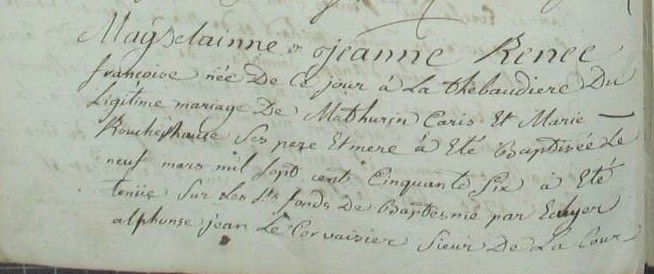 Magdelainne jeanne Renee
francoise née De ce jour à La thebaudiere Du
Legitime mariage De Mathurin Caris Et Marie
Ses pere Et mere à Eté Baptisée Le
neuf mars mil Sept cent Cinquante Six à Eté
tenüe Sur Les Sts fonds De Baptesme par Ecuyer
alphonse jean Le Corvaisier Sieur De La Cour